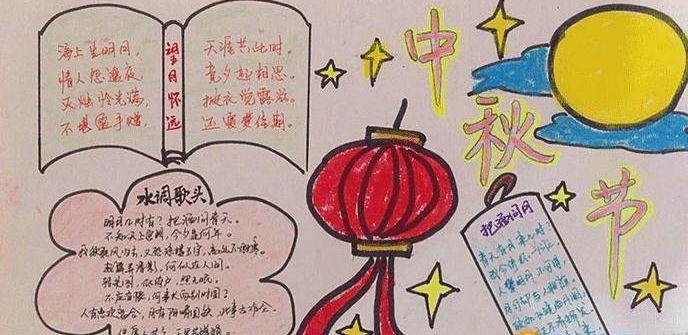 海上生明月,
情人怨遥夜,
灭烛怜光满,
不堪盈手赠,
望月怀远
天涯共此时。
竟夕起相思。
披衣觉露滋。
还寝梦佳期。
中秋节
水调歌头
明月几时有?把酒问青天。
不知天上宫阙,今夕是何年。
我欲乘风归去,又恐琼楼玉宇,高处不胜寒。
起舞弄清影,何似在人间。
转朱阁,低绮户,照无眠。
不应有恨,何事长向别时圆?
人有悲欢离合,月有阴晴圆缺,此事古难全。
把酒问月
青天有月来几时?
我今停杯一问之
人攀明月不可得,